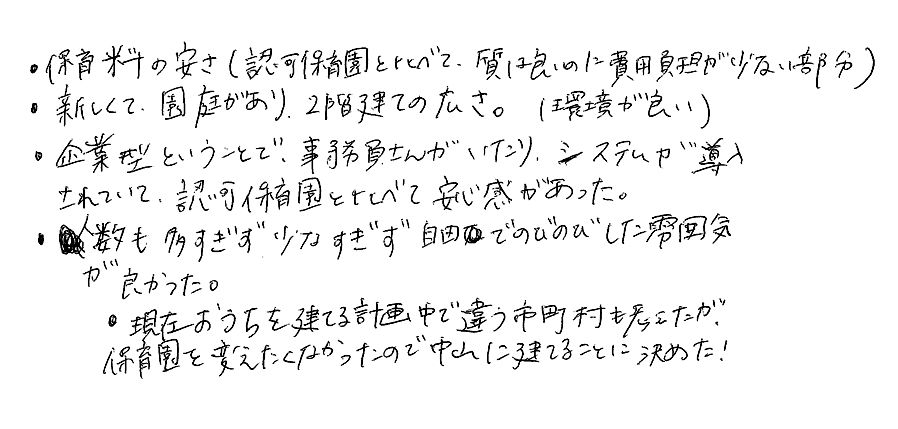 ・保育料の安さ(認可保育園と比べて、質は良いのに費用負担が少ない部分)
・新しくて、園庭があり、2階建ての広さ。(環境が良い)
・企業型ということで、事務員さんがいたり、システムが導入
されていて、認可保育園と比べて安心感があった。
・人数も多すぎず少なすぎず自由でのびのびした雰囲気
が良かった。
・現在おうちを建てる計画中で違う市町村も考えたが、
保育園を変えたくなかったので中山に建てることに決めた!